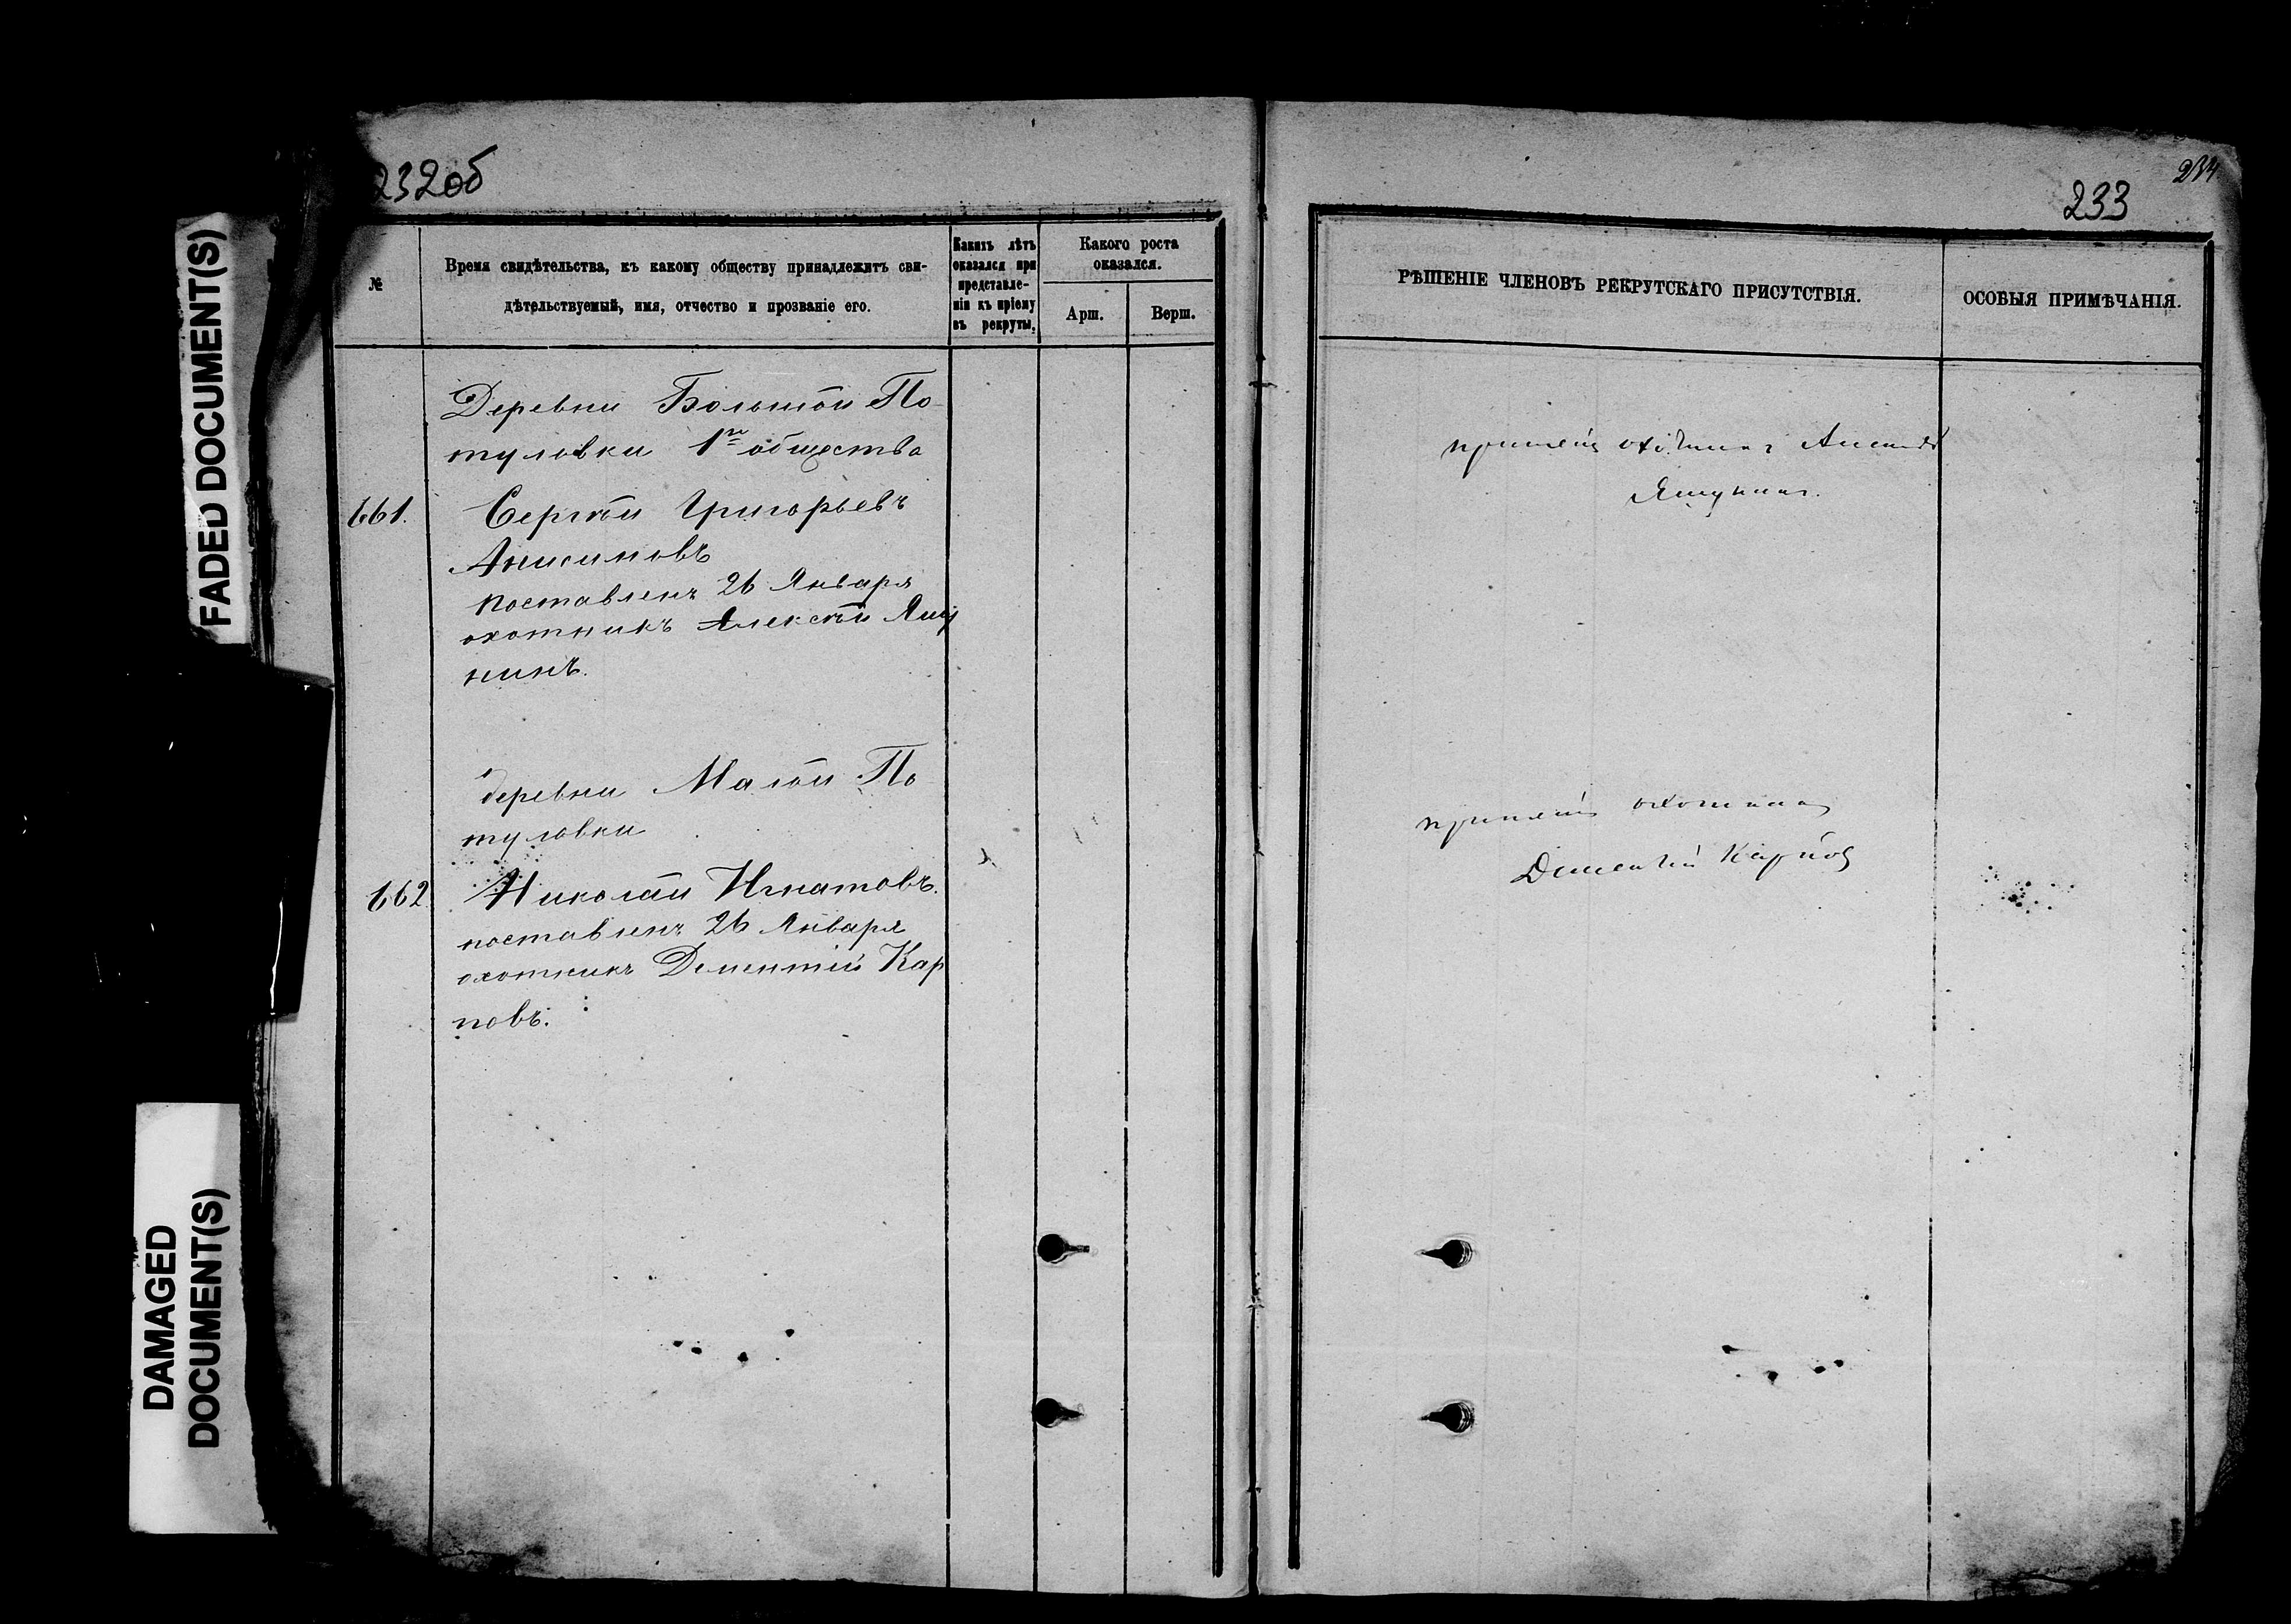 232об
№
Время свидѣтельства, къ какому обществу принадлежитъ сви-
дѣтельствуемый, имя, отчество и прозваніе его.
Какихъ лѣтъ
оказался при
представле-
ніи къ пріему
въ рекруты.
Какого роста
оказался.
Арш.
Верш.
Деревни Большой По-
туловки 1го общества
661.
Сергѣй Григорьевъ
Анисимовъ
поставленъ 26 Января
охотникъ Алексѣй Яшу
нинъ.
деревни Малой По
туловки
662
Николай Игнатовъ.
поставленъ 26 Января
охотникъ Дементій Кар
повъ.
234
233
РѢШЕНІЕ ЧЛЕНОВЪ РЕКРУТСКАГО ПРИСУТСТВІЯ.
ОСОБЫЯ ПРИМѢЧАНІЯ.
принятъ охотникъ Алексѣй
Яшунинъ.
принятъ охотникъ
Дементій Карповъ
FADED DOCUMENT(S)
DAMAGED
DOCUMENT(S)